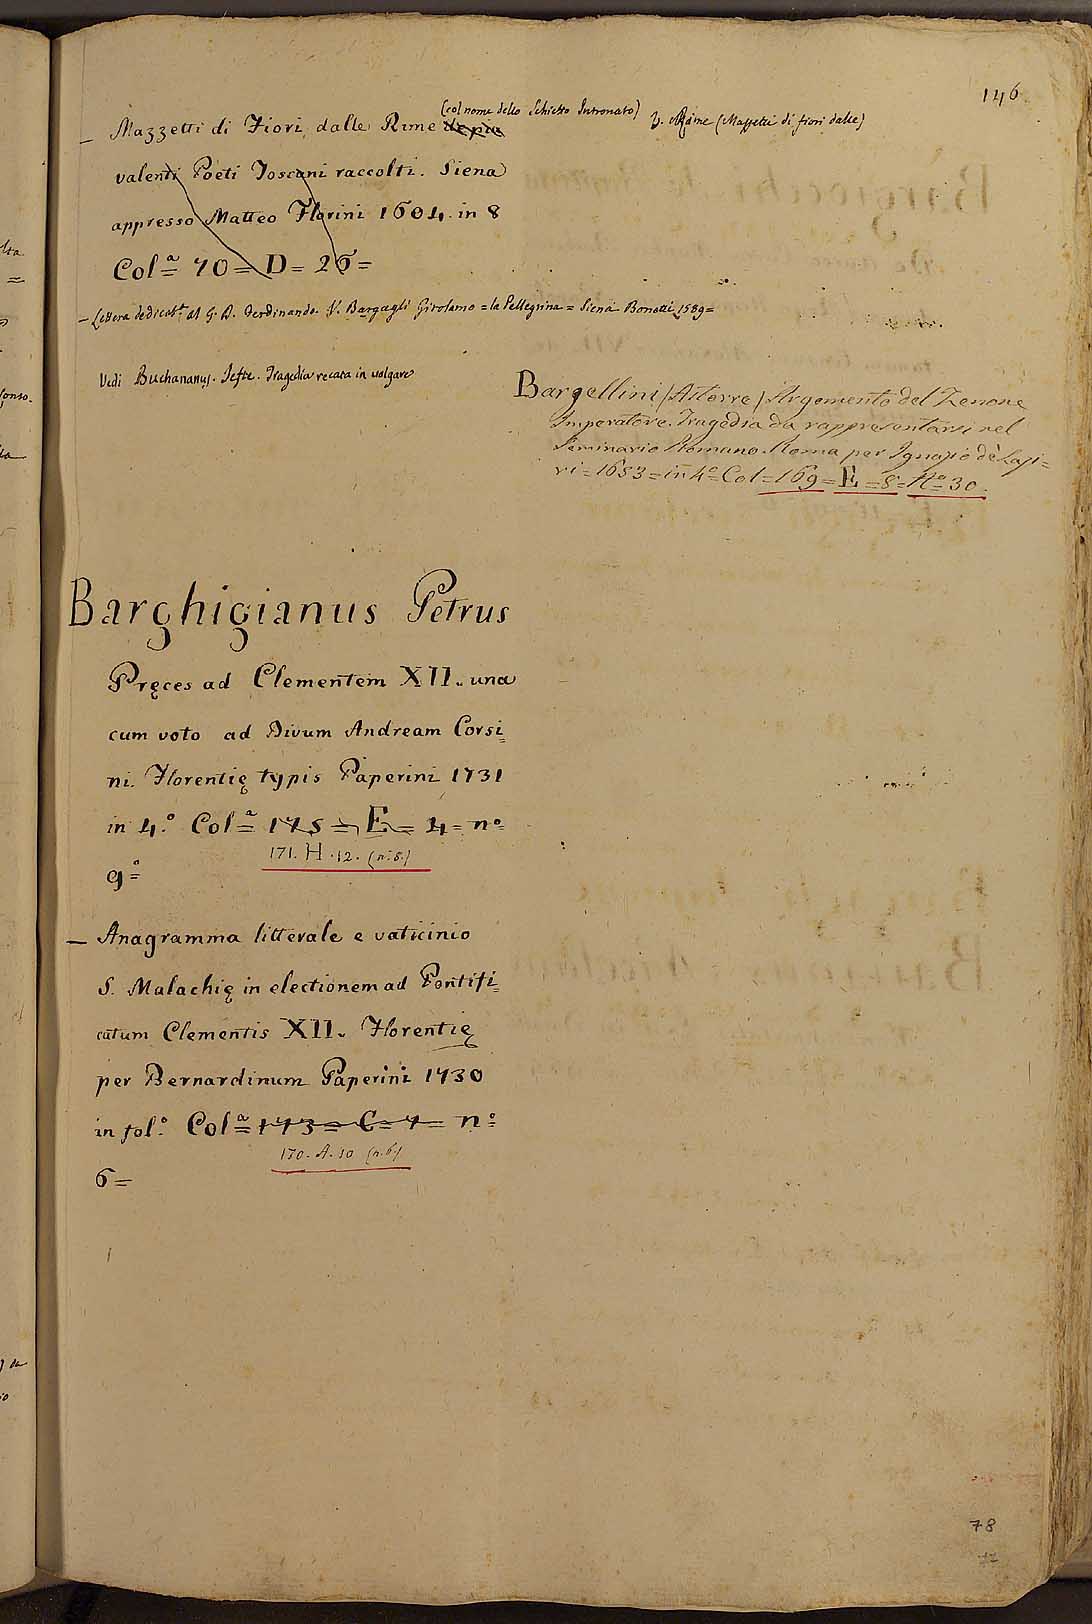 146
(col nome dello Schietto Intronato)
– Mazzetti di Fiori dalle Rime de più V. Rime (Mazzetti di fiori dalle)
valenti Poeti Toscani raccolti. Siena
appresso Matteo Florini 1604. in 8
Colª= 70= D= 26=
– Lettera dedicatª al G. D. Ferdinando. V. Bargagli Girolamo = la Pellegrina = Siena Bonetti 1589=
Vedi Buchananus. Jefte. Tragedia recata in volgare
Bargellini /Astorre/ Argomento del Zenone
Imperatore. Tragedia da rappresentarsi nel
Seminario Romano. Roma per Ignazio dè Lazi=
ri= 1653= in 4º= Col= 169= E= 8= Nº 30.
Barghigianus Petrus
Pręces ad Clementem XII. una
cum voto ad Divum Andream Corsi=
ni. Florentię typis Paperini 1731
in 4.º Colª= 175= E= 4= nº=
171. H. 12. (n.8.)
9º=
– Anagramma litterale e vaticinio
S. Malachię in electionem ad Pontifi=
catum Clementis XII. Florentię
per Bernardinum Paperini 1730
in fol.º Colª= 173= C= 7= nº=
170. A. 10 (n.6.)
6=
78